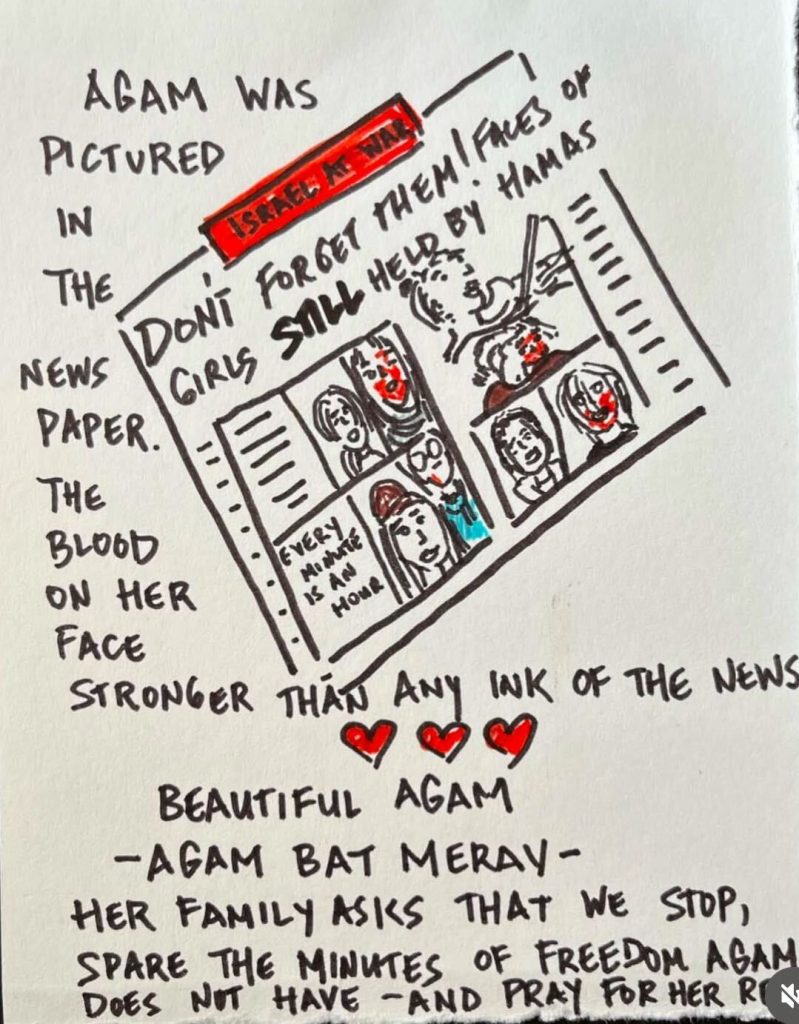 AGAM WAS
PICTURED
IN
THE
NEWS
PAPER.
THE
BLOOD
ON HER
FACE
STRONGER THAN ANY INK OF THE NEWS
ISRAEL AT WAR
DON'T FORGET THEM! FACES OF
GIRLS STILL HELD BY HAMAS
EVERY
MINUTE
IS AN
HOUR
BEAUTIFUL AGAM
-AGAM BAT MERAV-
HER FAMILY ASKS THAT WE STOP,
SPARE THE MINUTES OF FREEDOM AGAM
DOES NOT HAVE -AND PRAY FOR HER